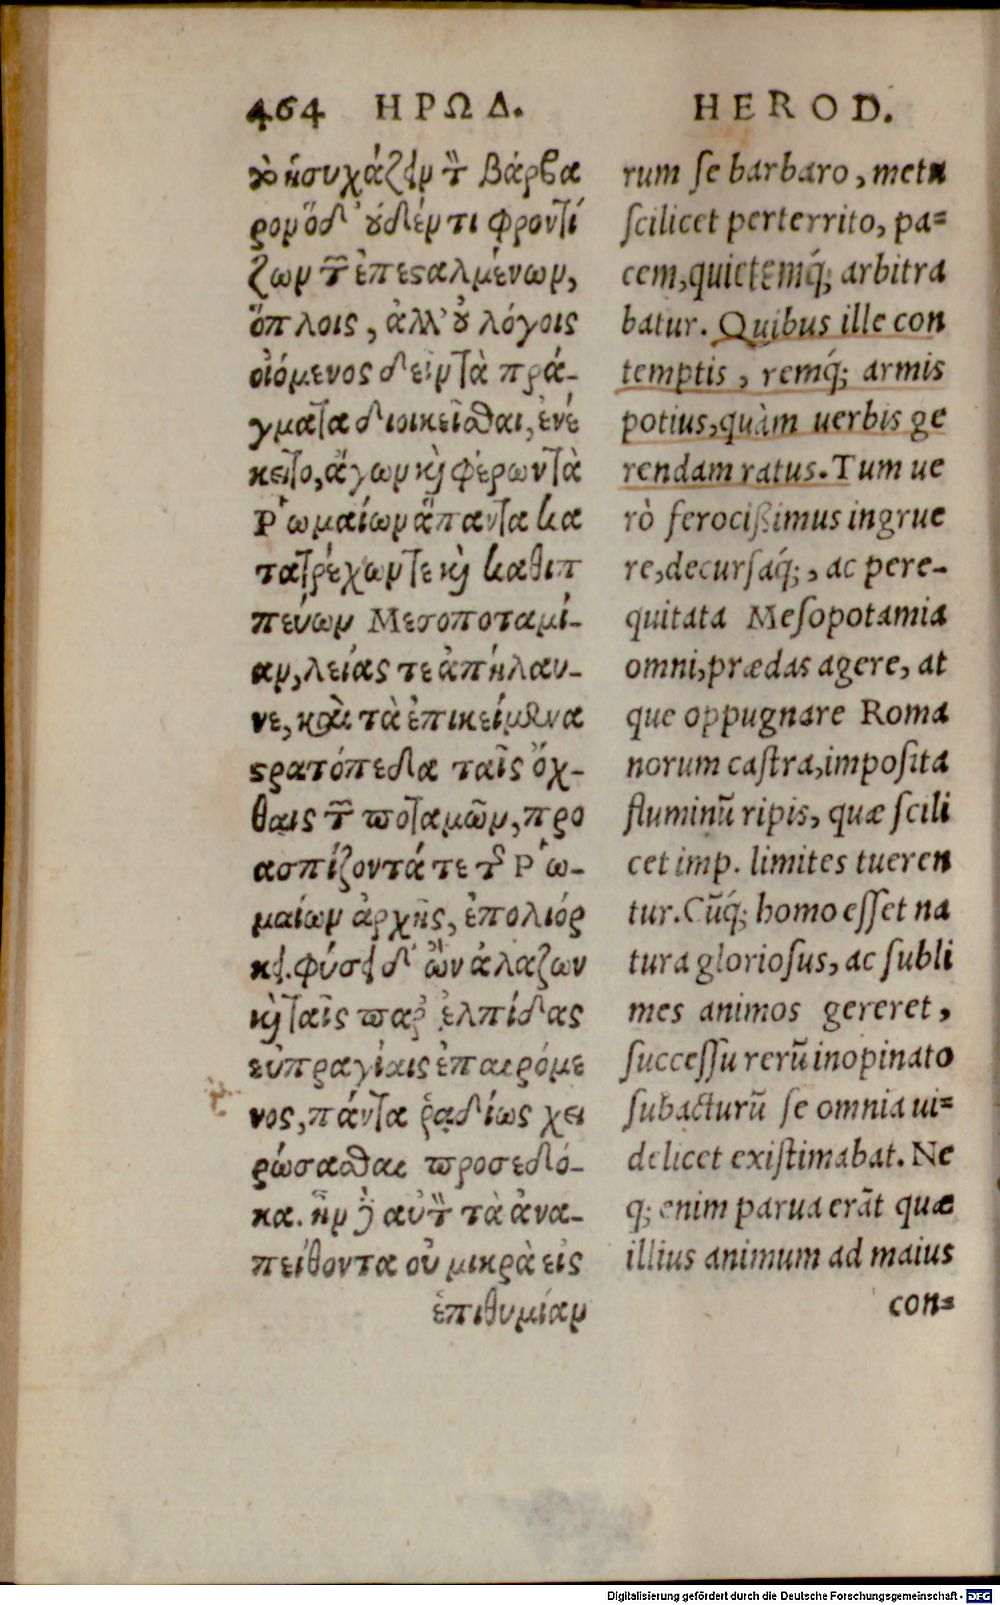 464 ΗΡΩΔ.
ἢ ἡσυχάζειν τὸν βάρβα
ρον ὅδ' οὐδέν τι φροντί
ζων τῶν ἐπεσαλμένων,
ὅπλοις, ἀλλ' οὐ λόγοις
οἰόμενος δεῖν τὰ πρά-
γματα διοικεῖσθαι, ἐνέ
κειτο, ἄγων καὶ φέρων τὰ
Ῥωμαίων ἅπαντα κα
τατρέχων τε καὶ καθιπ
πεύων Μεσοποταμί-
αν, λείας τε ἀπήλαυ-
νε, καὶ τὰ ἐπικείμενα
στρατόπεδα ταῖς ὄχ-
θαις τῶν ποταμῶν, προ
ασπίζοντά τε τῆς Ῥω-
μαίων ἀρχῆς, ἐπολιόρ
κει. φύσει δ' ὢν ἀλαζων
καὶ ταῖς παρ' ἐλπίδας
εὐπραγίαις ἐπαιρόμε
νος, πάντα ῥαδίως χει
ρώσασθαι προσεδό-
κα. ἦν δὲ αὐτὸν τὰ ἀνα-
πείθοντα οὐ μικρὰ εἰς
ἐπιθυμίαν
HEROD.
rum se barbaro, metu
scilicet perterrito, pa=
cem, quietemq́; arbitra
batur. Quibus ille con
temptis, remq́; armis
potius, quàm uerbis ge
rendam ratus. Tum ue
rò ferocißimus ingrue
re, decursaq́;, ac pere-
quitata Mesopotamia
omni, prædas agere, at
que oppugnare Roma
norum castra, imposita
fluminū ripis, quæ scili
cet imp. limites tueren
tur. Cūq́; homo esset na
tura gloriosus, ac subli
mes animos gereret,
successu rerū inopinato
subacturū se omnia ui=
delicet existimabat. Ne
q; enim parua erāt quæ
illius animum ad maius
con=
Digitalisierung gefördert durch die Deutsche Forschungsgemeinschaft - DFG